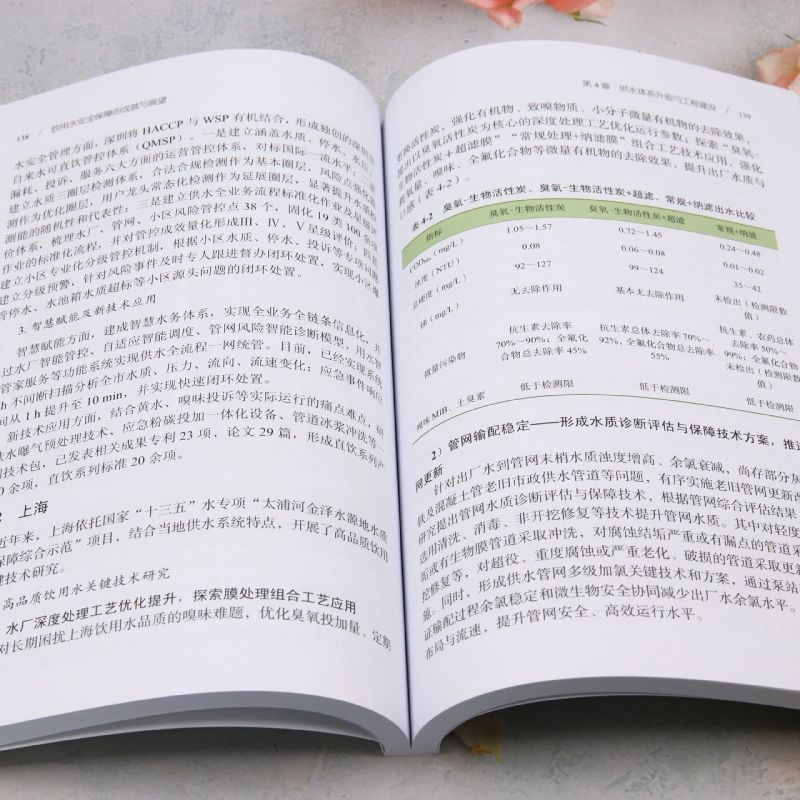 138 / 饮用水安全保障的成就与展望
水安全管理方面,深圳将 HACCP 与 WSP 有机结合,形成独创的深圳市
自来水可直饮管控体系(QMSP)。一是建立涵盖水质、停水、水压、
漏耗、投诉、服务六大方面的运营管控体系,对标国际一流水平;二是
建立水质三圈层检测体系,合法合规检测作为基本圈层,风险点强化监
测作为优化圈层,用户龙头常态化检测作为延展圈层,显著提升水质检
测能的随机性和代表性;三是建立供水全业务流程标准化作业及星级评
价体系,梳理水厂、管网、小区风险管控点 38 个,固化 19 类 100 余项
作业的标准化流程,并对管控成效量化形成Ⅲ、Ⅳ、Ⅴ星级评价;四是
建立小区专业化分级管控机制,根据小区水质、停水、投诉等专项问题
建立分级预警,针对风险事件及时专人跟进督办闭环处置,实现小区爆
管停水、水池箱水质超标等小区源头问题的闭环处置。
3. 智慧赋能及新技术应用
智慧赋能方面,建成智慧水务体系,实现全业务全链条信息化,并
过水厂智能管控、自适应智能调度、管网风险智能诊断模型、用水智
管家服务等功能系统实现供水全流程一网统管。目前,已经实现系统
h 不间断扫描分析全市水质、压力、流向、流速变化;应急事件响应
间从 1 h 提升至 10 min,并实现快速闭环处置。
新技术应用方面,结合黄水、嗅味投诉等实际运行的痛点难点,研
水曝气预处理技术、应急粉碳投加一体化设备、管道冰浆冲洗等一
技术包,已发表相关成果专利 23 项、论文 29 篇,形成直饮系列产
余项,直饮系列标准 20 余项。
2 上海
近年来,上海依托国家“十三五”水专项“太浦河金泽水源地水质
保障综合示范”项目,结合当地供水系统特点,开展了高品质饮用
建技术研究。
高品质饮用水关键技术研究
水厂深度处理工艺优化提升,探索膜处理组合工艺应用
对长期困扰上海饮用水品质的嗅味难题,优化臭氧投加量、定期
第 4 章 供水体系升级与工程建设 / 139
更换活性炭,强化有机物、致嗅物质、小分子微量有机物的去除效果,
提出以臭氧活性炭为核心的深度处理工艺优化运行参数。探索“臭氧-
生物活性炭+超滤膜”“常规处理+纳滤膜”组合工艺技术应用,强化
耗氧量、嗅味、全氟化合物等微量有机物的去除效果,提升出厂水质与
口感(表 4-2)。
表 4-2 臭氧-生物活性炭、臭氧-生物活性炭+超滤、常规+纳滤出水比较
指标 臭氧-生物活性炭 臭氧-生物活性炭+超滤 常规+纳滤
CODMn(mg/L) 1.05~1.57 0.72~1.45 0.24~0.48
浊度(NTU) 0.08 0.06~0.08 0.01~0.02
总硬度(mg/L) 92~127 99~124 35~42
锑(mg/L) 无去除作用 基本无去除作用 未检出(检测限数值)
微量污染物 抗生素去除率 70%~90%;全氟化合物总去除率 45% 抗生素总体去除率 70%~92%,全氟化合物总去除率 55% 抗生素、农药总体去除率 50%~99%;全氟化合物未检出(检测限数值)
嗅味 MIB、土臭素 低于检测限 低于检测限 低于检测限
2)管网输配稳定——形成水质诊断评估与保障技术方案,推进
网更新
针对出厂水到管网末梢水质浊度增高、余氯衰减,尚存部分灰
铁及混凝土管老旧市政供水管道等问题,有序实施老旧管网更新改
研究提出管网水质诊断评估与保障技术,根据管网综合评估结果
选用清洗、消毒、非开挖修复等技术提升管网水质。其中对轻度
垢或有生物膜管道采取冲洗,对腐蚀结垢严重或有漏点的管道采
挖修复等,对超役、重度腐蚀或严重老化、破损的管道采取更新
施。同时,形成供水管网多级加氯关键技术和方案,通过泵站
证输配过程余氯稳定和微生物安全协同减少出厂水余氯水平。
布局与流速,提升管网安全、高效运行水平。